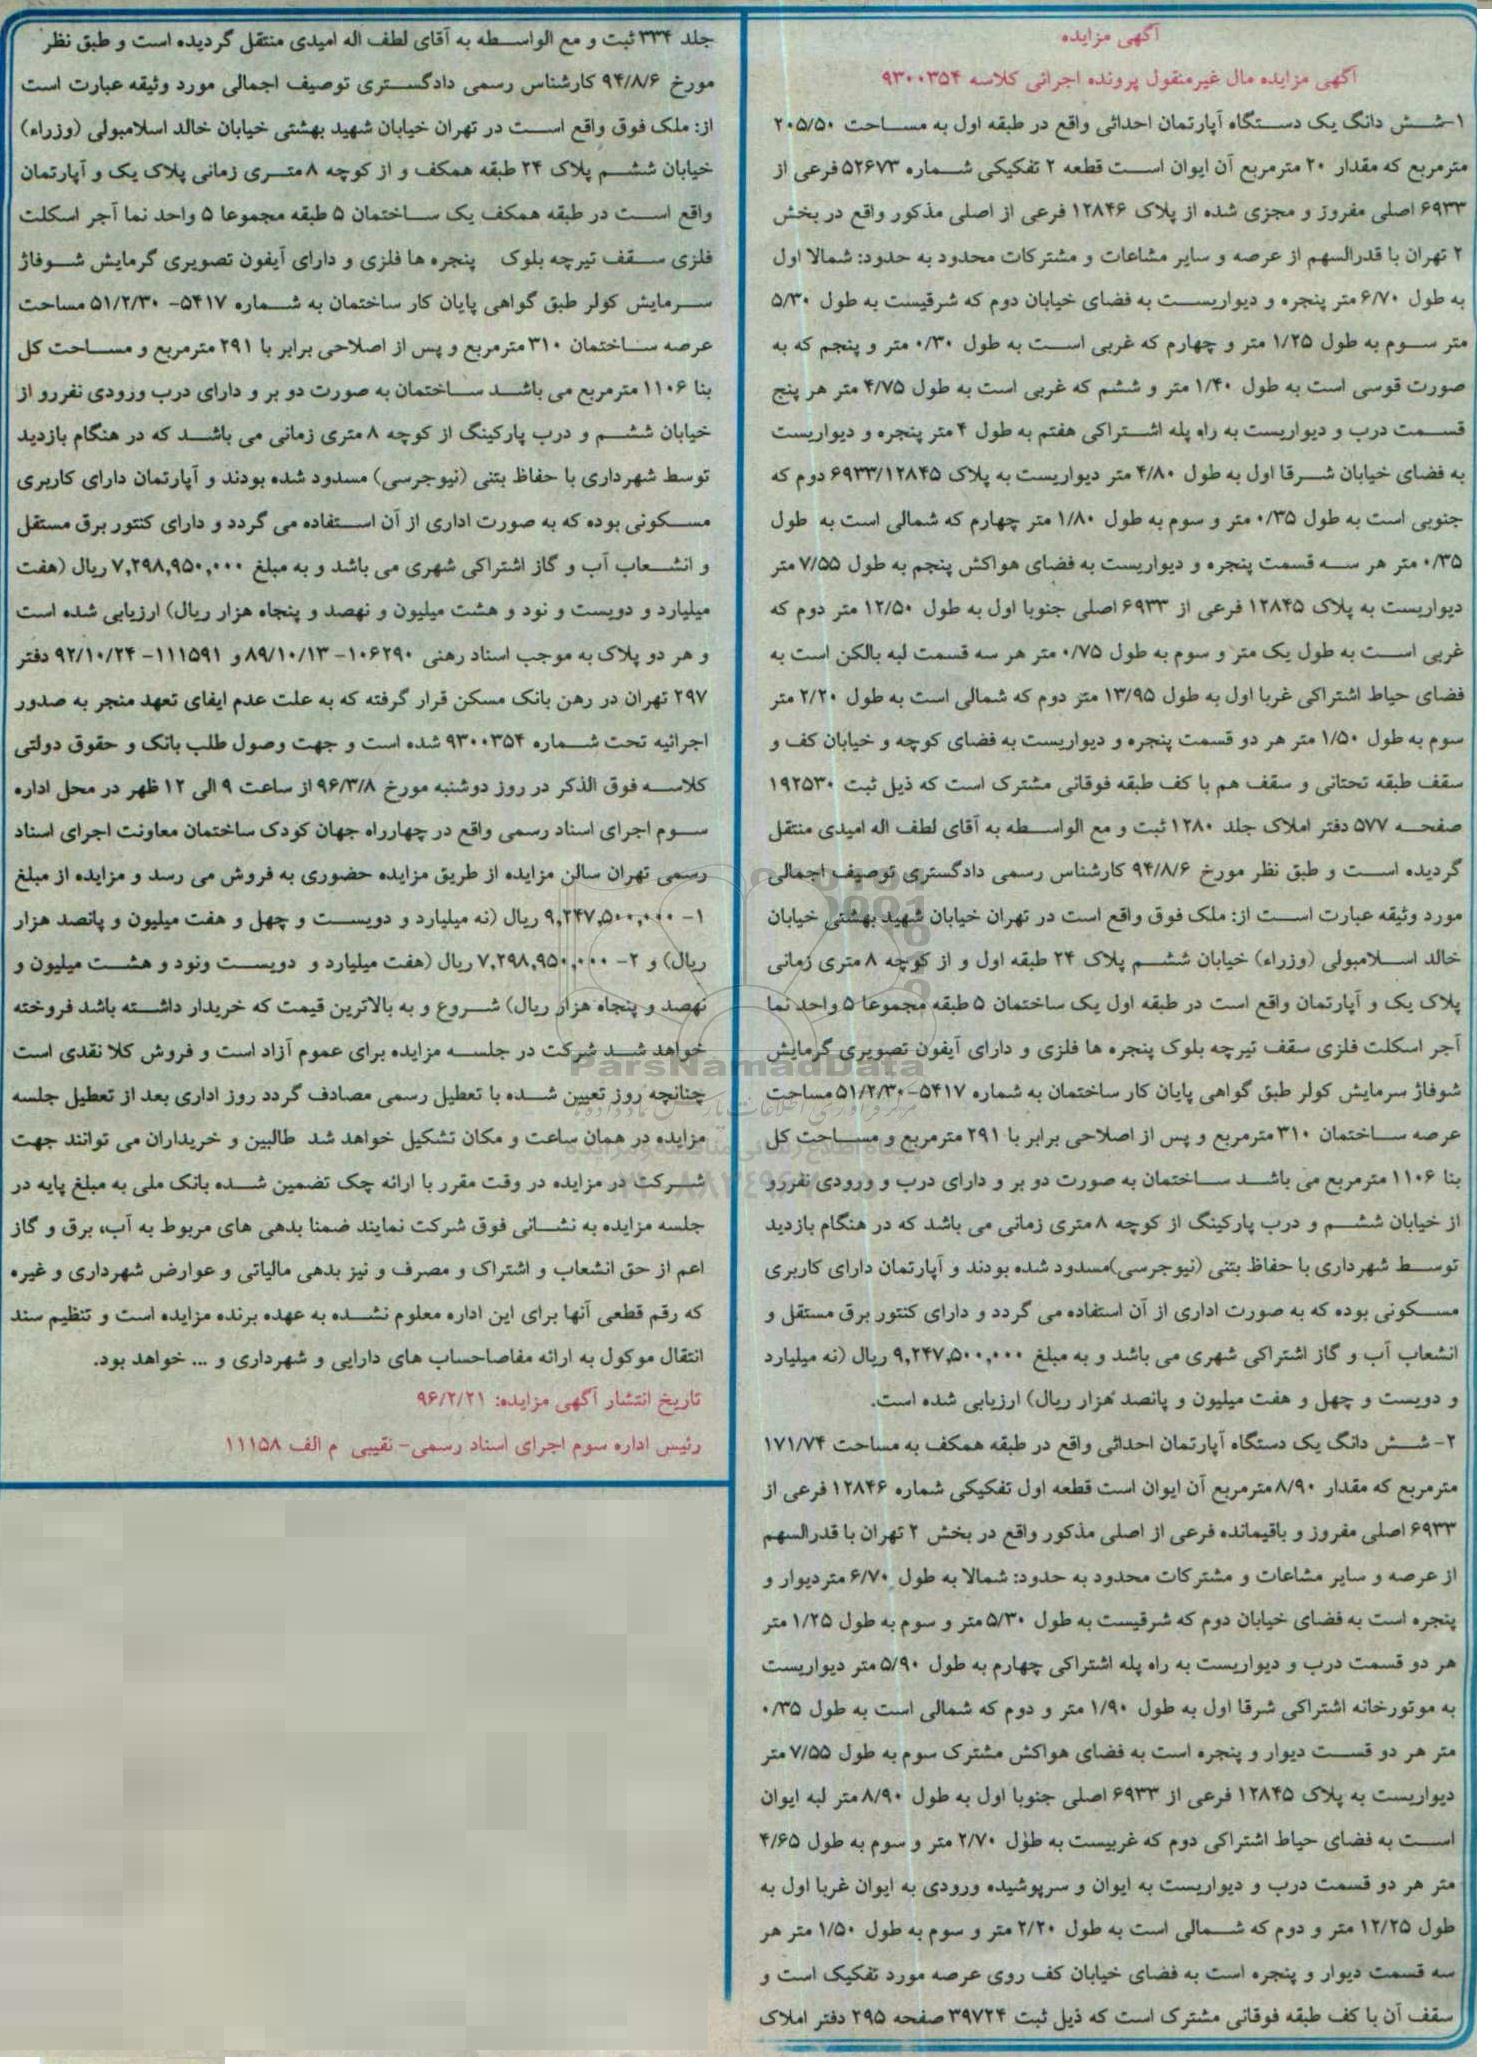 آگهی مزایده
آگهی مزایده مال غیرمنقول پرونده اجرائی کلاسه ۹۳۰۰۳۵۴
۱-شش دانگ یک دستگاه آپارتمان احداثی واقع در طبقه اول به مساحت ۲۰۵/۵۰
مترمربع که مقدار ۲۰ مترمربع آن ایوان است قطعه ۲ تفکیکی شماره ۵۲۶۷۳ فرعی از
۶۹۳۳ اصلی مفروز و مجزی شده از پلاک ۱۲۸۴۶ فرعی از اصلی مذکور واقع در بخش
۲ تهران با قدرالسهم از عرصه و سایر مشاعات و مشترکات محدود به حدود: شمالا اول
به طول ۶/۷۰ متر پنجره و دیواریست به فضای خیابان دوم که شرقیست به طول ۵/۳۰
متر سوم به طول ۱/۲۵ متر و چهارم که غربی است به طول ۰/۳۰ متر و پنجم که به
صورت قوسی است به طول ۱/۴۰ متر و ششم که غربی است به طول ۴/۷۵ متر هر پنج
قسمت درب و دیواریست به راه پله اشتراکی هفتم به طول ۴ متر پنجره و دیواریست
به فضای خیابان شرقا اول به طول ۴/۸۰ متر دیواریست به پلاک ۶۹۳۳/۱۲۸۴۵ دوم که
جنوبی است به طول ۰/۳۵ متر و سوم به طول ۱/۸۰ متر چهارم که شمالی است به طول
۰/۳۵ متر هر سه قسمت پنجره و دیواریست به فضای هواکش پنجم به طول ۷/۵۵ متر
دیواریست به پلاک ۱۲۸۴۵ فرعی از ۶۹۳۳ اصلی جنوبا اول به طول ۱۲/۵۰ متر دوم که
غربی است به طول یک متر و سوم به طول ۰/۷۵ متر هر سه قسمت لبه بالکن است به
فضای حیاط اشتراکی غربا اول به طول ۱۳/۹۵ متر دوم که شمالی است به طول ۲/۲۰ متر
سوم به طول ۱/۵۰ متر هر دو قسمت پنجره و دیواریست به فضای کوچه و خیابان کف و
سقف طبقه تحتانی و سقف هم با کف طبقه فوقانی مشترک است که ذیل ثبت ۱۹۲۵۳۰
صفحه ۵۷۷ دفتر املاک جلد ۱۲۸۰ ثبت و مع الواسطه به آقای لطف اله امیدی منتقل
گردیده است و طبق نظر مورخ ۹۴/۸/۶ کارشناس رسمی دادگستری توصیف اجمالی
مورد وثیقه عبارت است از: ملک فوق واقع است در تهران خیابان شهید بهشتی خیابان
خالد اسلامبولی (وزراء) خیابان ششم پلاک ۲۴ طبقه اول و از کوچه ۸ متری زمانی
پلاک یک و آپارتمان واقع است در طبقه اول یک ساختمان ۵ طبقه مجموعا ۵ واحد نما
آجر اسکلت فلزی سقف تیرچه بلوک پنجره ها فلزی و دارای آیفون تصویری گرمایش
شوفاژ سرمایش کولر طبق گواهی پایان کار ساختمان به شماره ۵۴۱۷-۵۱/۲/۳۰ مساحت
عرصه ساختمان ۳۱۰ مترمربع و پس از اصلاحی برابر با ۲۹۱ مترمربع و مساحت کل
بنا ۱۱۰۶ مترمربع می باشد ساختمان به صورت دو بر و دارای درب و ورودی نفررو
از خیابان ششم و درب پارکینگ از کوچه ۸ متری زمانی می باشد که در هنگام بازدید
توسط شهرداری با حفاظ بتنی (نیوجرسی)مسدود شده بودند و آپارتمان دارای کاربری
مسکونی بوده که به صورت اداری از آن استفاده می گردد و دارای کنتور برق مستقل و
انشعاب آب و گاز اشتراکی شهری می باشد و به مبلغ ۹,۲۴۷,۵۰۰,۰۰۰ ریال (نه میلیارد
و دویست و چهل و هفت میلیون و پانصد هزار ریال) ارزیابی شده است.
۲- شش دانگ یک دستگاه آپارتمان احداثی واقع در طبقه همکف به مساحت ۱۷۱/۷۴
مترمربع که مقدار ۸/۹۰ مترمربع آن ایوان است قطعه اول تفکیکی شماره ۱۲۸۴۶ فرعی از
۶۹۳۳ اصلی مفروز و باقیمانده فرعی از اصلی مذکور واقع در بخش ۲ تهران با قدرالسهم
از عرصه و سایر مشاعات و مشترکات محدود به حدود: شمالا به طول ۶/۷۰ متردیوار و
پنجره است به فضای خیابان دوم که شرقیست به طول ۵/۳۰ متر و سوم به طول ۱/۲۵ متر
هر دو قسمت درب و دیواریست به راه پله اشتراکی چهارم به طول ۵/۹۰ متر دیواریست
به موتورخانه اشتراکی شرقا اول به طول ۱/۹۰ متر و دوم که شمالی است به طول ۰/۳۵
متر هر دو قسمت دیوار و پنجره است به فضای هواکش مشترک سوم به طول ۷/۵۵ متر
دیواریست به پلاک ۱۲۸۴۵ فرعی از ۶۹۳۳ اصلی جنوبا اول به طول ۸/۹۰ متر لبه ایوان
است به فضای حیاط اشتراکی دوم که غربیست به طول ۲/۷۰ متر و سوم به طول ۴/۶۵
متر هر دو قسمت درب و دیواریست به ایوان و سرپوشیده ورودی به ایوان غربا اول به
طول ۱۲/۲۵ متر و دوم که شمالی است به طول ۲/۲۰ متر و سوم به طول ۱/۵۰ متر هر
سه قسمت دیوار و پنجره است به فضای خیابان کف روی عرصه مورد تفکیک است و
سقف آن با کف طبقه فوقانی مشترک است که ذیل ثبت ۳۹۷۲۴ صفحه ۲۹۵ دفتر املاک
جلد ۳۳۴ ثبت و مع الواسطه به آقای لطف اله امیدی منتقل گردیده است و طبق نظر
مورخ ۹۴/۸/۶ کارشناس رسمی دادگستری توصیف اجمالی مورد وثیقه عبارت است
از: ملک فوق واقع است در تهران خیابان شهید بهشتی خیابان خالد اسلامبولی (وزراء)
خیابان ششم پلاک ۲۴ طبقه همکف و از کوچه ۸ متری زمانی پلاک یک و آپارتمان
واقع است در طبقه همکف یک ساختمان ۵ طبقه مجموعا ۵ واحد نما آجر اسکلت
فلزی سقف تیرچه بلوک پنجره ها فلزی و دارای آیفون تصویری گرمایش شوفاژ
سرمایش کولر طبق گواهی پایان کار ساختمان به شماره ۵۴۱۷- ۵۱/۲/۳۰ مساحت
عرصه ساختمان ۳۱۰ مترمربع و پس از اصلاحی برابر با ۲۹۱ مترمربع و مساحت کل
بنا ۱۱۰۶ مترمربع می باشد ساختمان به صورت دو بر و دارای درب ورودی نفررو از
خیابان ششم و درب پارکینگ از کوچه ۸ متری زمانی می باشد که در هنگام بازدید
توسط شهرداری با حفاظ بتنی (نیوجرسی) مسدود شده بودند و آپارتمان دارای کاربری
مسکونی بوده که به صورت اداری از آن استفاده می گردد و دارای کنتور برق مستقل
و انشعاب آب و گاز اشتراکی شهری می باشد و به مبلغ ۷,۲۹۸,۹۵۰,۰۰۰ ریال (هفت
میلیارد و دویست و نود و هشت میلیون و نهصد و پنجاه هزار ریال) ارزیابی شده است
و هر دو پلاک به موجب اسناد رهنی ۱۰۶۲۹۰- ۸۹/۱۰/۱۳ و ۱۱۱۵۹۱- ۹۲/۱۰/۲۴ دفتر
۲۹۷ تهران در رهن بانک مسکن قرار گرفته که به علت عدم ایفای تعهد منجر به صدور
اجرائیه تحت شماره ۹۳۰۰۳۵۴ شده است و جهت وصول طلب بانک و حقوق دولتی
کلاسه فوق الذکر در روز دوشنبه مورخ ۹۶/۳/۸ از ساعت ۹ الی ۱۲ ظهر در محل اداره
سوم اجرای اسناد رسمی واقع در چهارراه جهان کودک ساختمان معاونت اجرای اسناد
رسمی تهران سالن مزایده از طریق مزایده حضوری به فروش می رسد و مزایده از مبلغ
۱- ۹,۲۴۷,۵۰۰,۰۰۰ ریال (نه میلیارد و دویست و چهل و هفت میلیون و پانصد هزار
ریال) و ۲- ۷,۲۹۸,۹۵۰,۰۰۰ ریال (هفت میلیارد و دویست ونود و هشت میلیون و
نهصد و پنجاه هزار ریال) شروع و به بالاترین قیمت که خریدار داشته باشد فروخته
خواهد شد شرکت در جلسه مزایده برای عموم آزاد است و فروش کلا نقدی است
چنانچه روز تعیین شده با تعطیل رسمی مصادف گردد روز اداری بعد از تعطیل جلسه
مزایده در همان ساعت و مکان تشکیل خواهد شد طالبین و خریداران می توانند جهت
شرکت در مزایده در وقت مقرر با ارائه چک تضمین شده بانک ملی به مبلغ پایه در
جلسه مزایده به نشانی فوق شرکت نمایند ضمنا بدهی های مربوط به آب، برق و گاز
اعم از حق انشعاب و اشتراک و مصرف و نیز بدهی مالیاتی و عوارض شهرداری و غیره
که رقم قطعی آنها برای این اداره معلوم نشده به عهده برنده مزایده است و تنظیم سند
انتقال موکول به ارائه مفاصاحساب های دارایی و شهرداری و ... خواهد بود.
تاریخ انتشار آگهی مزایده: ۹۶/۲/۲۱
رئیس اداره سوم اجرای اسناد رسمی- نقیبی م الف ۱۱۱۵۸
ParsNamadData